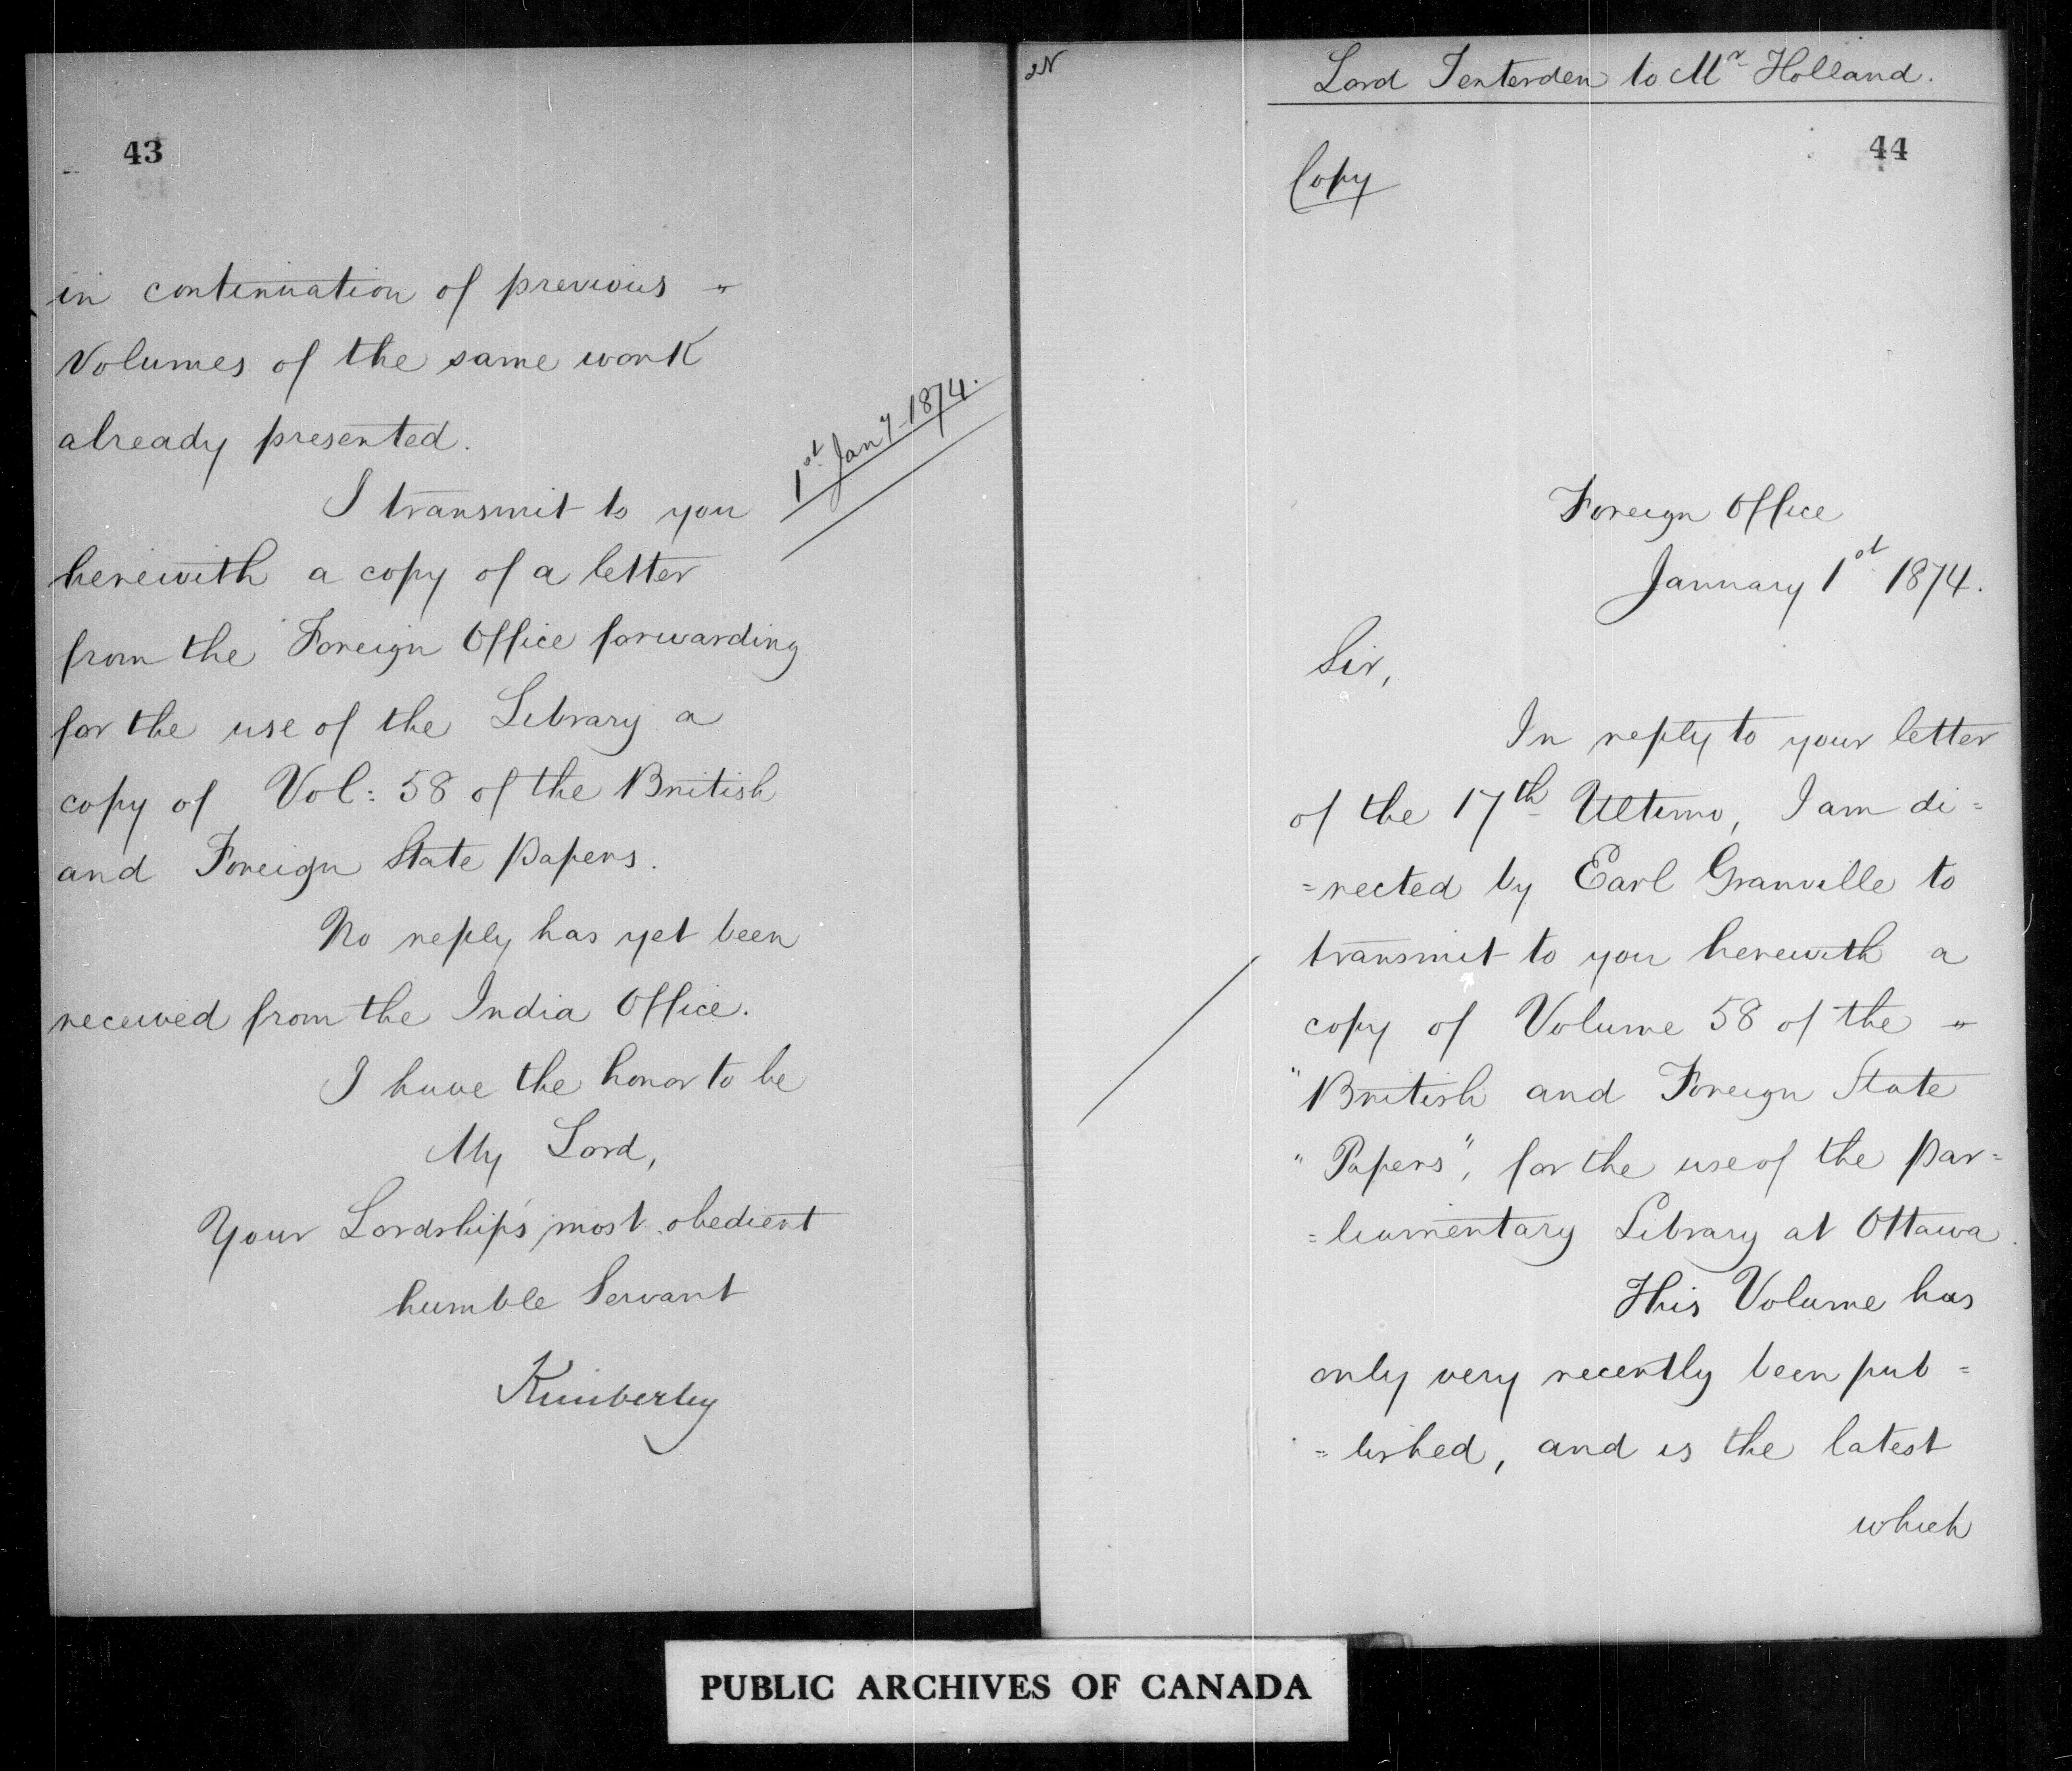 43
in continuation of previous "
Volumes of the same work
already presented.
I transmit to you
1st Jany 1874.
herewith a copy of a letter
from the Foreign Office forwarding
for the use of the Library a
copy of Vol: 58 of the British
and Foreign State Papers.
No reply has yet been
received from the India Office.
I have the honor to be
My Lord,
Your Lordship's most obedient
humble Servant
Kimberley
Lord Tenterden to Mr Holland.
44
Copy
Foreign Office
January 1st 1874.
Sir,
In reply to your letter
of the 17th Ultimo, I am di=
=rected by Earl Granville to
transmit to you herewith a
copy of Volume 58 of the "
"British and Foreign State
"Papers", for the use of the Par=
=liamentary Library at Ottawa.
This Volume has
only very recently been pub=
=lished, and is the latest
which
PUBLIC ARCHIVES OF CANADA